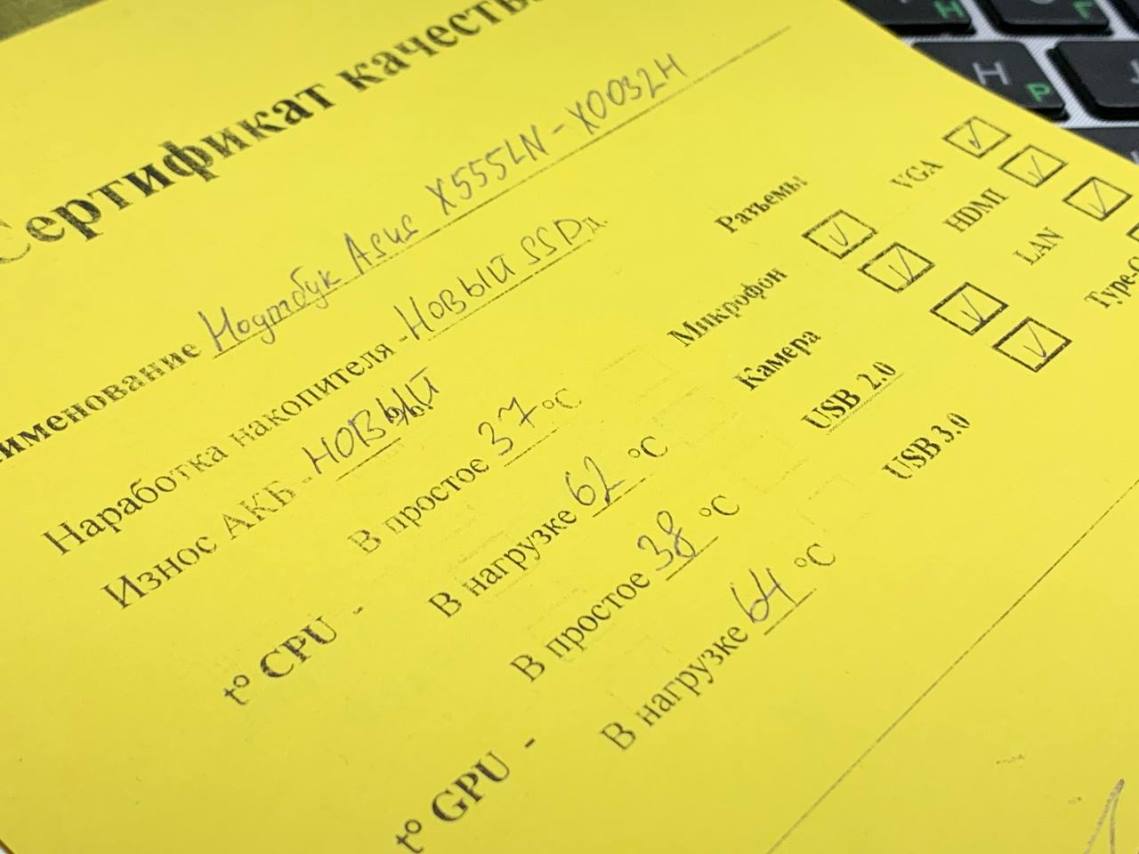 Сертификат качества
Наименование Ноутбук Asus X555LN-X0032H
Наработка накопителя - Новый SSD д.
Износ АКБ - НОВЫЙ %
t° CPU - В простое 37 °C
В нагрузке 62 °C
t° GPU - В простое 38 °C
В нагрузке 64 °C
Разъемы
Микрофон ✓ VGA ✓
Камера ✓ HDMI ✓
USB 2.0 ✓ LAN ✓
USB 3.0 ✓ Type-C
H Н
Р
Г